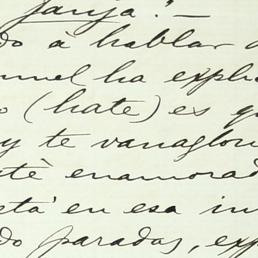 janja."—
do á hablar d
unel ha expli
o (hate) es q
y te vanaglor
tè enamorad
etá en esa in
do paradas, exp